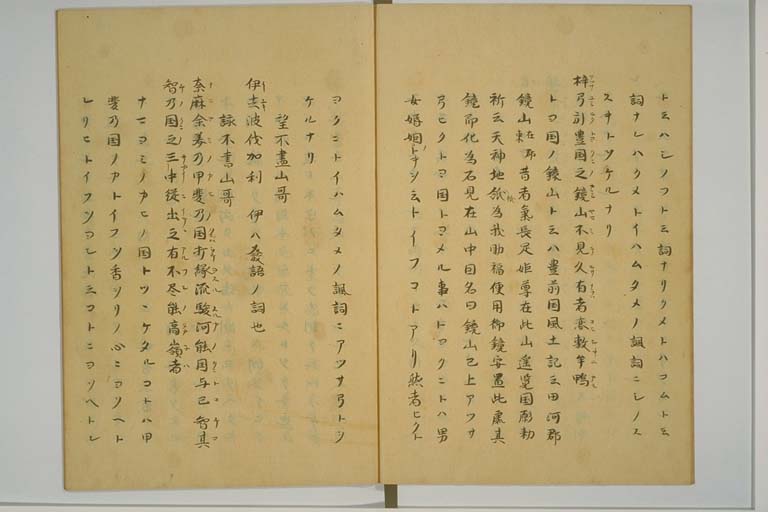 トミハシノフトミ詞ナリクメトハコムトミ
詞ナレハクメトイハムタメノ諷詞ニシノス
スキトツケルナリ
梓弓引豊国之鏡山不見久有者恋敷牟鴨
トヨ国ノ鏡山トミハ豊前国風土記云田河郡
鏡山在郡東昔者氣長足姫尊在此山遥覧国形勅
祈云天神地祇為我助福便用御鏡安置此處其
鏡即化為石見在山中因名曰鏡山已上アツサ
弓ヒクトヨ国トヨメル事ハトヨクニトハ男
女婚姻トチシミトイフコトアリ然者ヒクト
ヨクニトイハムタメノ諷詞ニアツサ弓トヲ
ケルナリ
望不盡山哥
伊去波伐加利 伊ハ發語ノ詞也
詠不盡山哥
奈麻余美乃甲斐乃国打縁流駿河能国与己智其
智乃国之三中従出之有不尽能高嶺者
ナマヨミノカヒノ国トツヽケタルコトハ甲
斐乃国ノアトイフツ香ツリノ心ニヨソヘト
レリヒトイフツヨシトミコトニヨソヘトレ